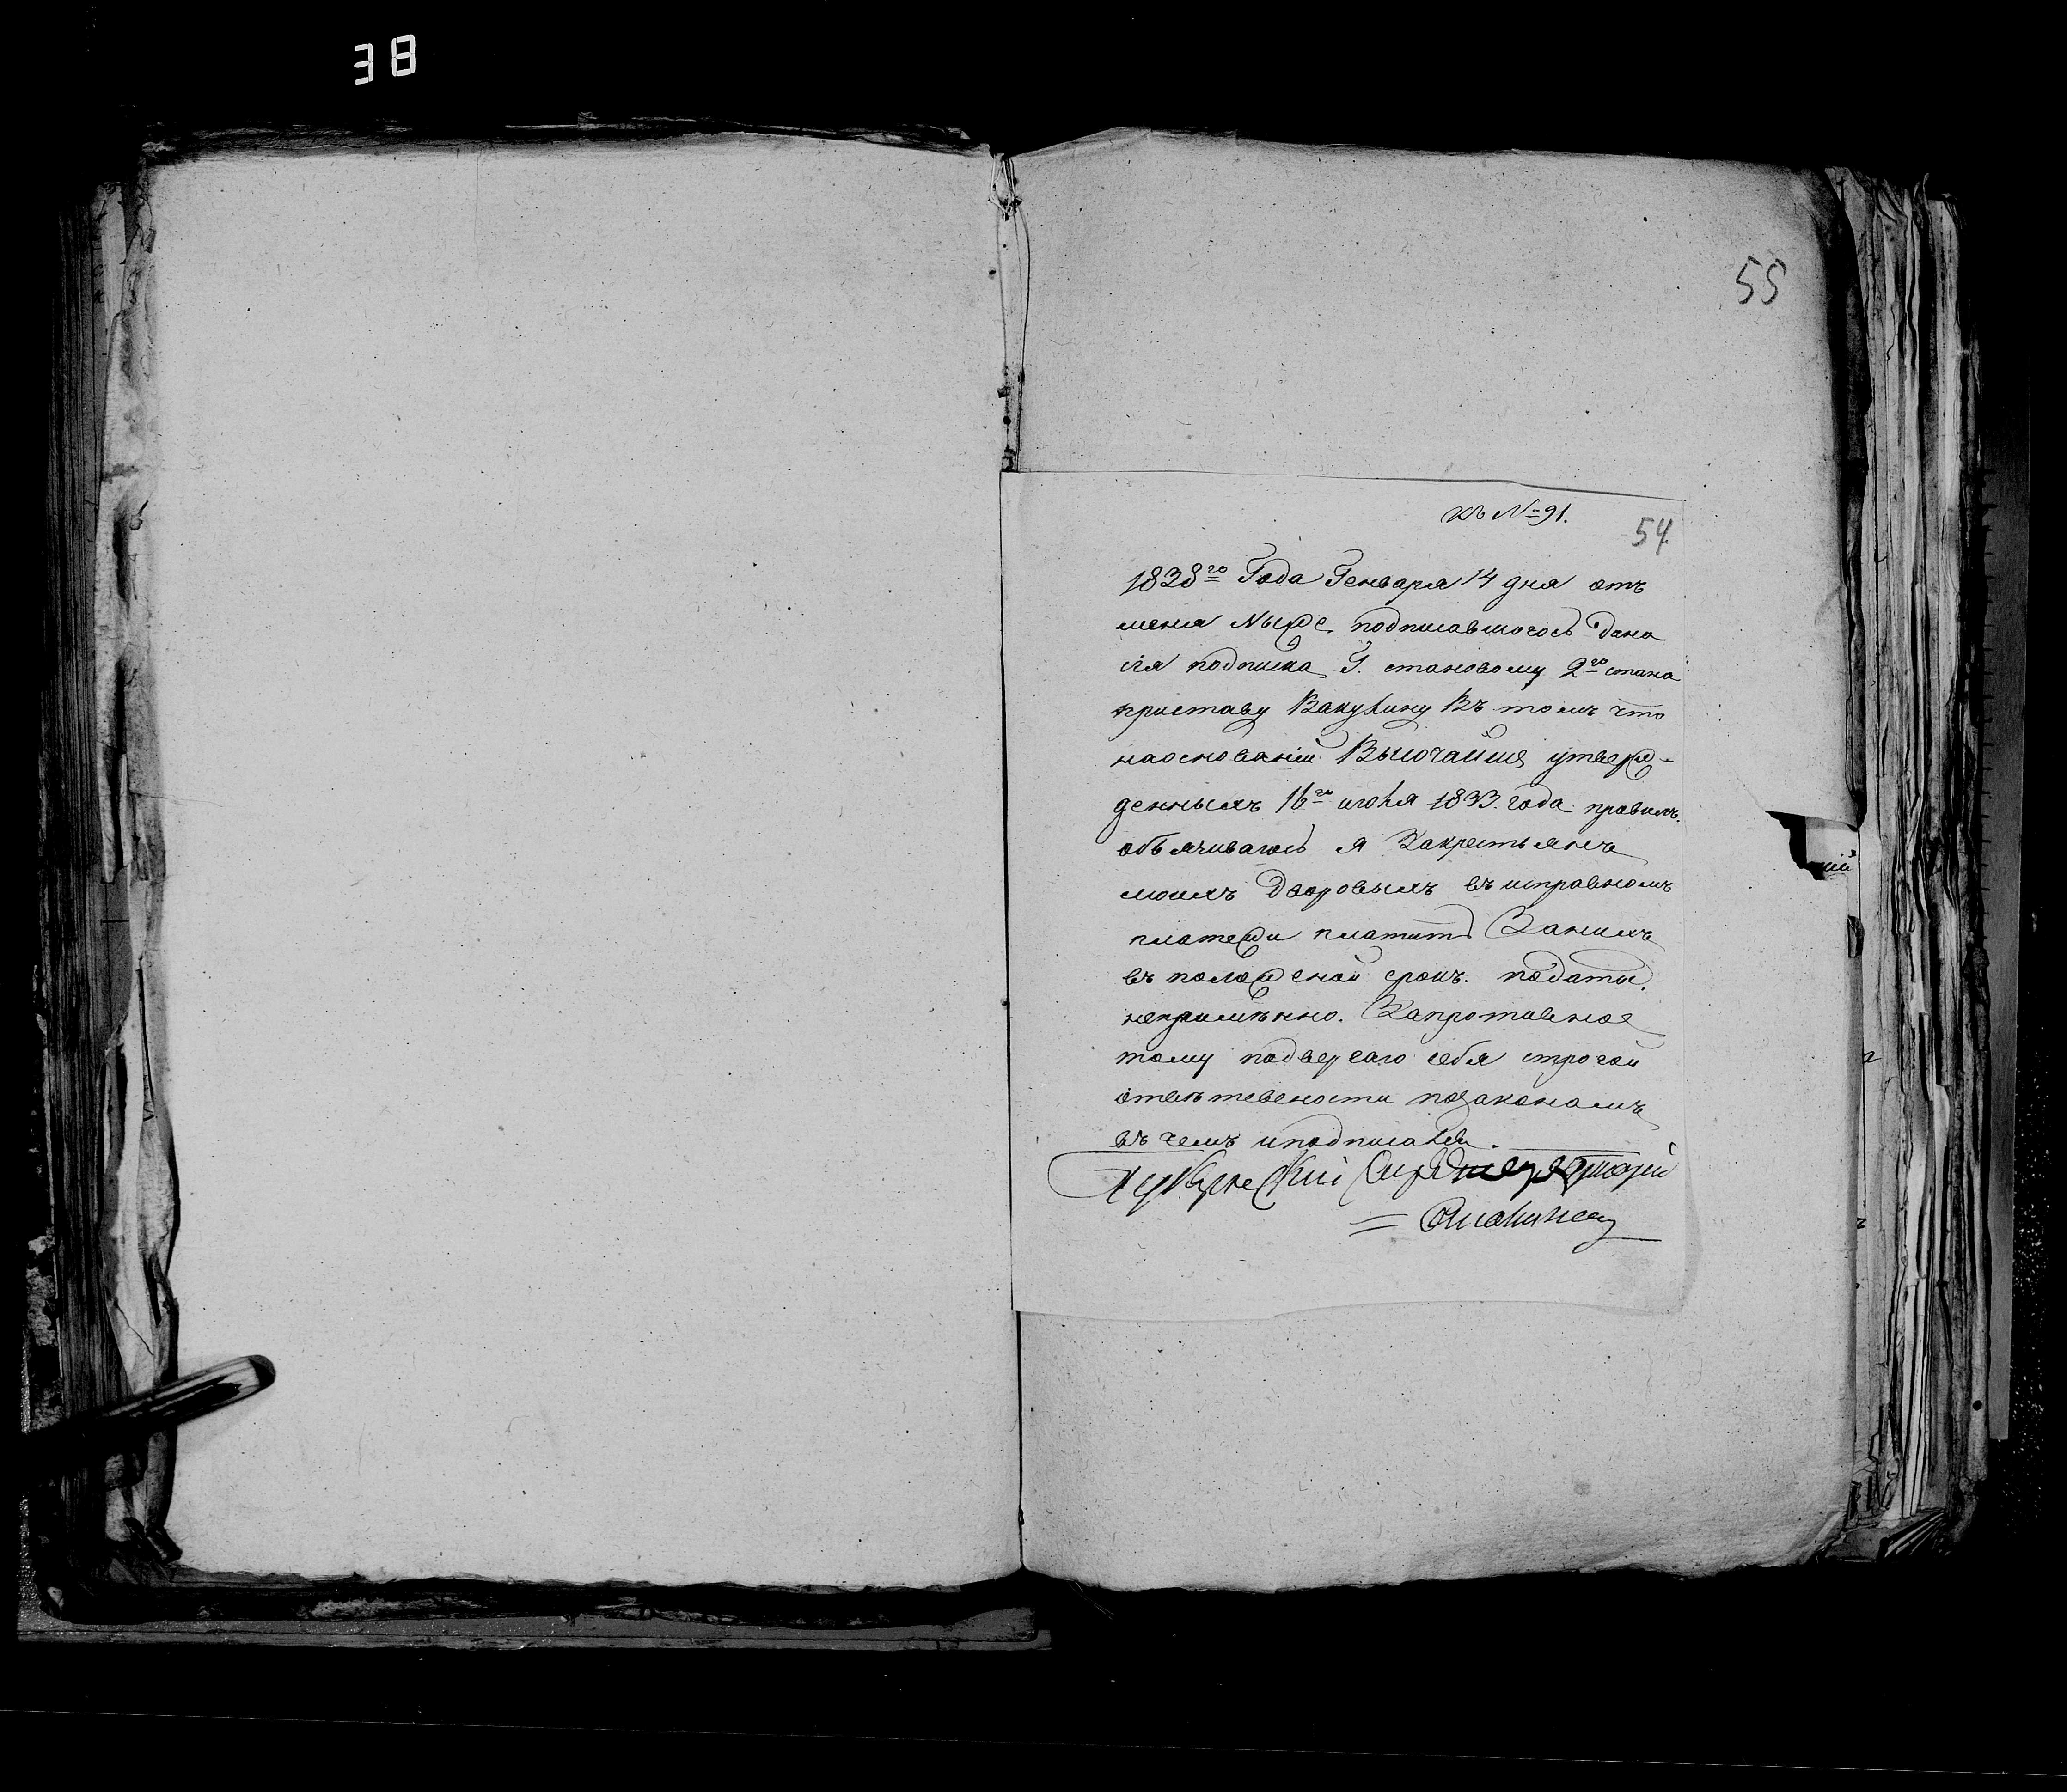 38
55
къ №91.
54
1838го Года Генваря 14 дня отъ
меня ниже подписавшагось дана
сiя подписка Г. становому 2го стана
приставу Вакулину Въ томъ что
наоснованiи Высочайше утверж-
денныхъ 16го июля 1833. года правилъ.
объязываюсь я Закрестьянъ
моихъ Дворовыхъ въ исправномъ
платежи платить Занихъ
въ положеной срокъ. подати.
непремѣнно. Запротивное
тому подвергаю себя строгой
отвѣтсвености позаконамъ
въ чемъ иподписался.